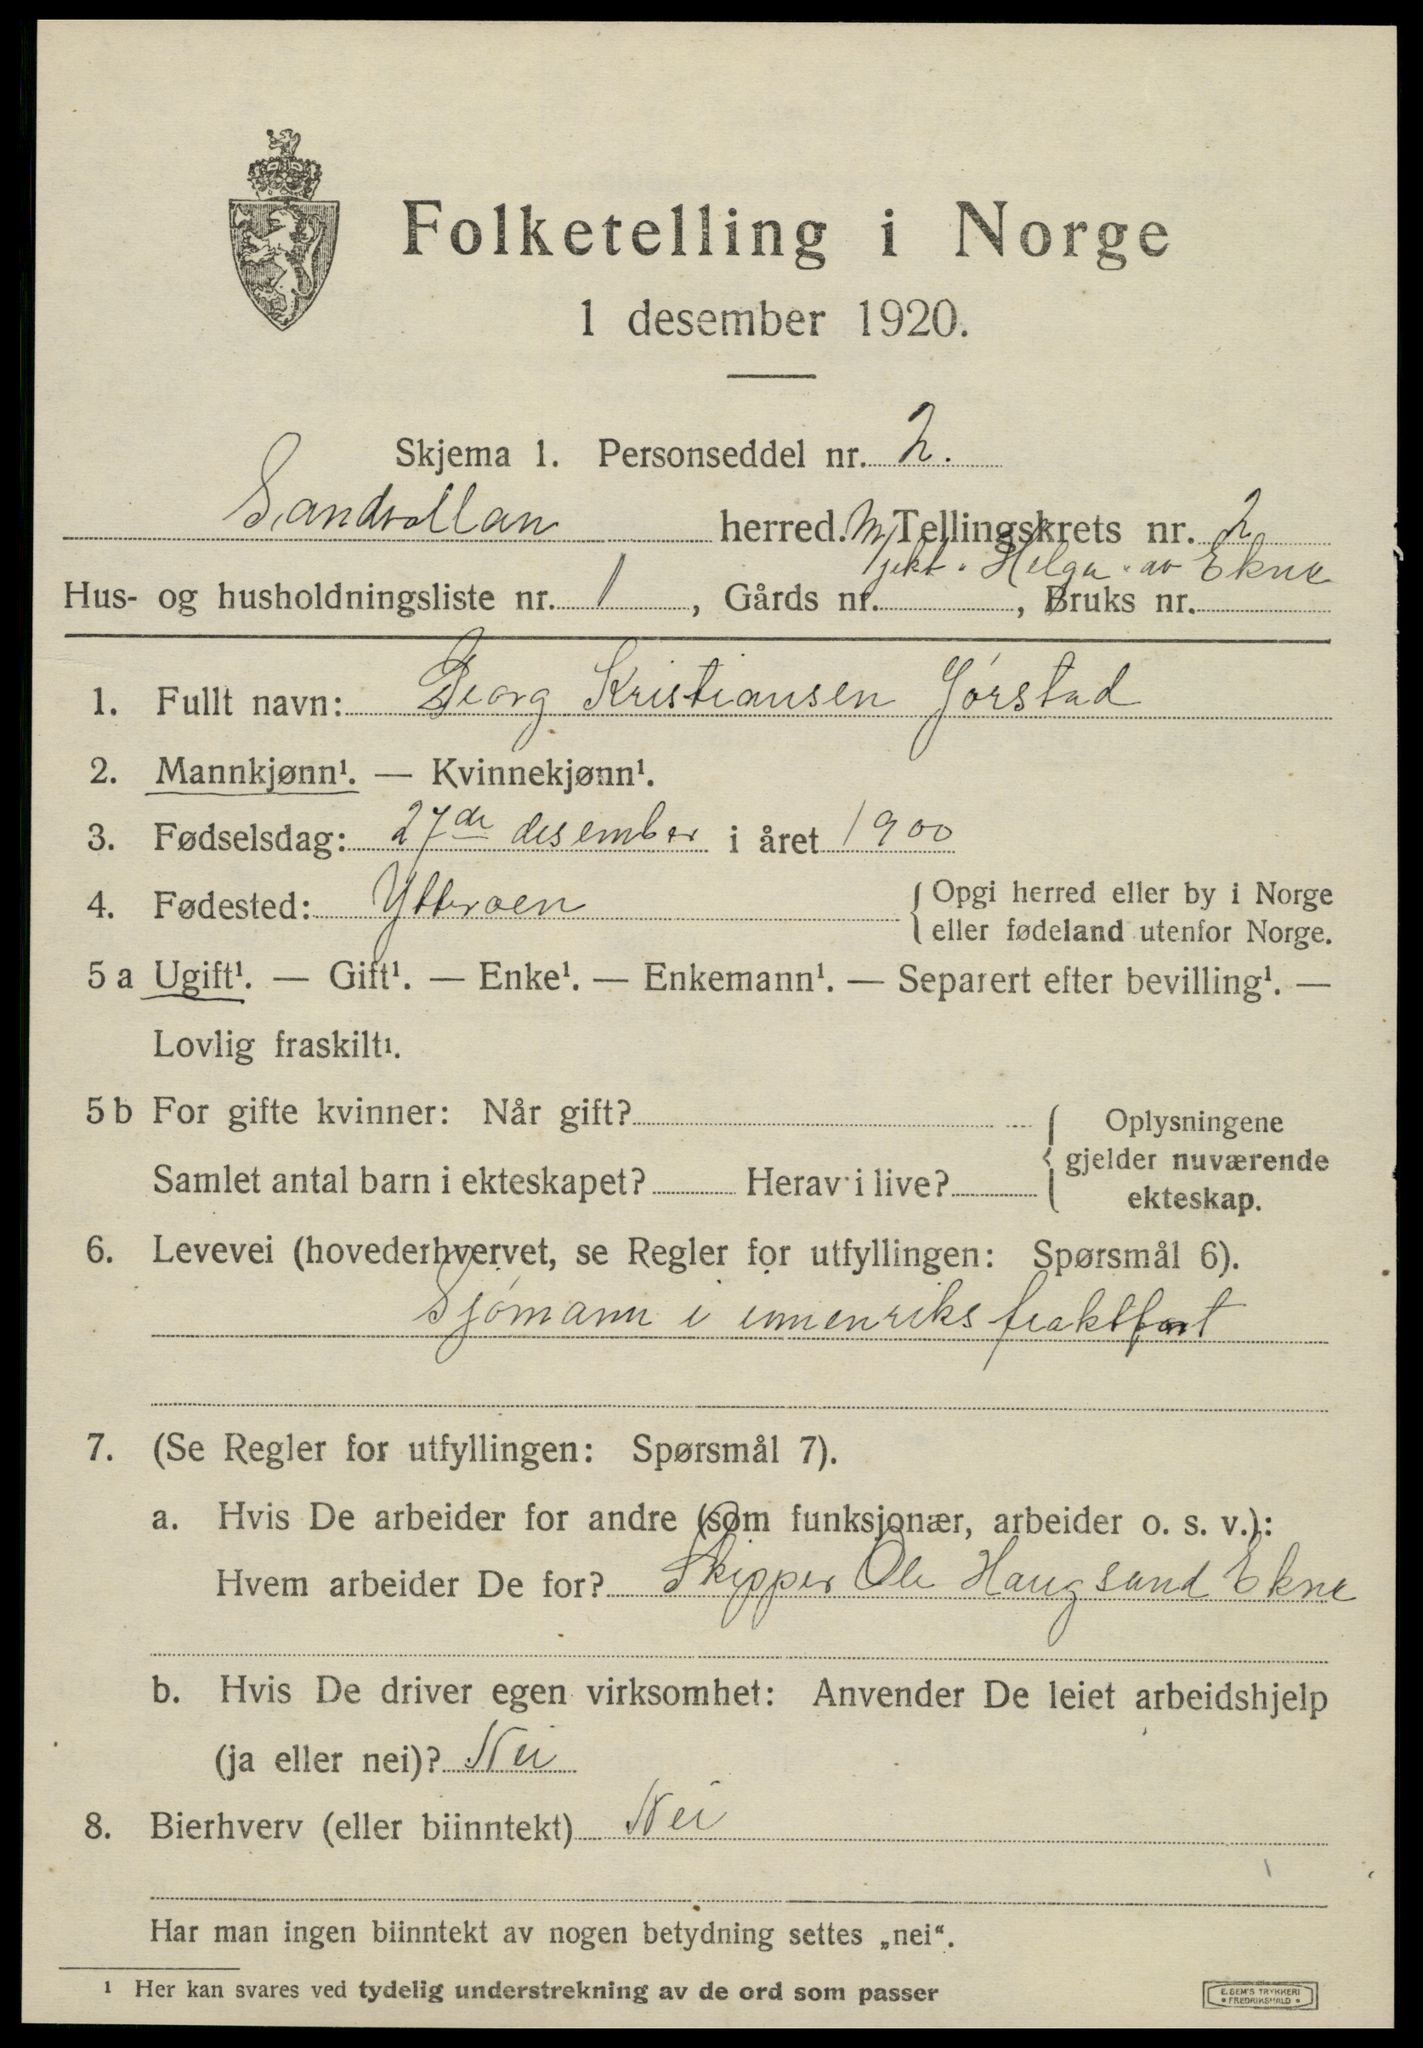 Folketelling i Norge
1 desember 1920.
Skjema 1. Personseddel nr. 2.
Sandvollan herred. M/ Tellingskrets nr. 2
jekt "Helga" av Ekne
Hus- og husholdningsliste nr. 1, Gårds nr. , Bruks nr.
1. Fullt navn: Georg Kristiansen Jórstad
2. Mannkjønn¹. — Kvinnekjønn¹.
3. Fødselsdag: 27de desember i året 1900
4. Fødested: Ytterøen { Opgi herred eller by i Norge
eller fødeland utenfor Norge.
5 a Ugift¹. — Gift¹. — Enke¹. — Enkemann¹. — Separert efter bevilling¹. —
Lovlig fraskilt¹.
5 b For gifte kvinner: Når gift? { Oplysningene
gjelder nuværende
Samlet antal barn i ekteskapet? Herav i live?
ekteskap.
6. Levevei (hovederhvervet, se Regler for utfyllingen: Spørsmål 6).
Sjómann i innenriks fraktfart
7. (Se Regler for utfyllingen: Spørsmål 7).
a. Hvis De arbeider for andre (som funksjonær, arbeider o. s. v.):
Hvem arbeider De for? Skipper Ole Haugsand Ekne
b. Hvis De driver egen virksomhet: Anvender De leiet arbeidshjelp
(ja eller nei)? Nei
8. Bierhverv (eller biinntekt) Nei
Har man ingen biinntekt av nogen betydning settes „nei“.
¹ Her kan svares ved tydelig understrekning av de ord som passer
E. SEM'S TRYKKERI
• FREDRIKSHALD •